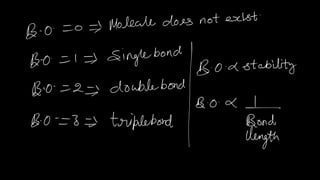 B.O = 0 => Molecule does not exist
B.O = 1 => Single bond
B.O = 2 => double bond
B.O = 3 => triple bond
B.O ∝ stability
B.O ∝ 1 / Bond length